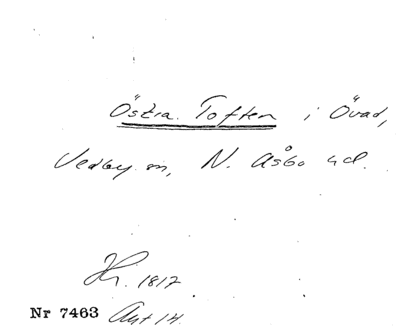 Östra Toften i Övad,
Vedby sn, N. Åsbo hd.
Hr. 1817
Nr 7463 Akt 14.